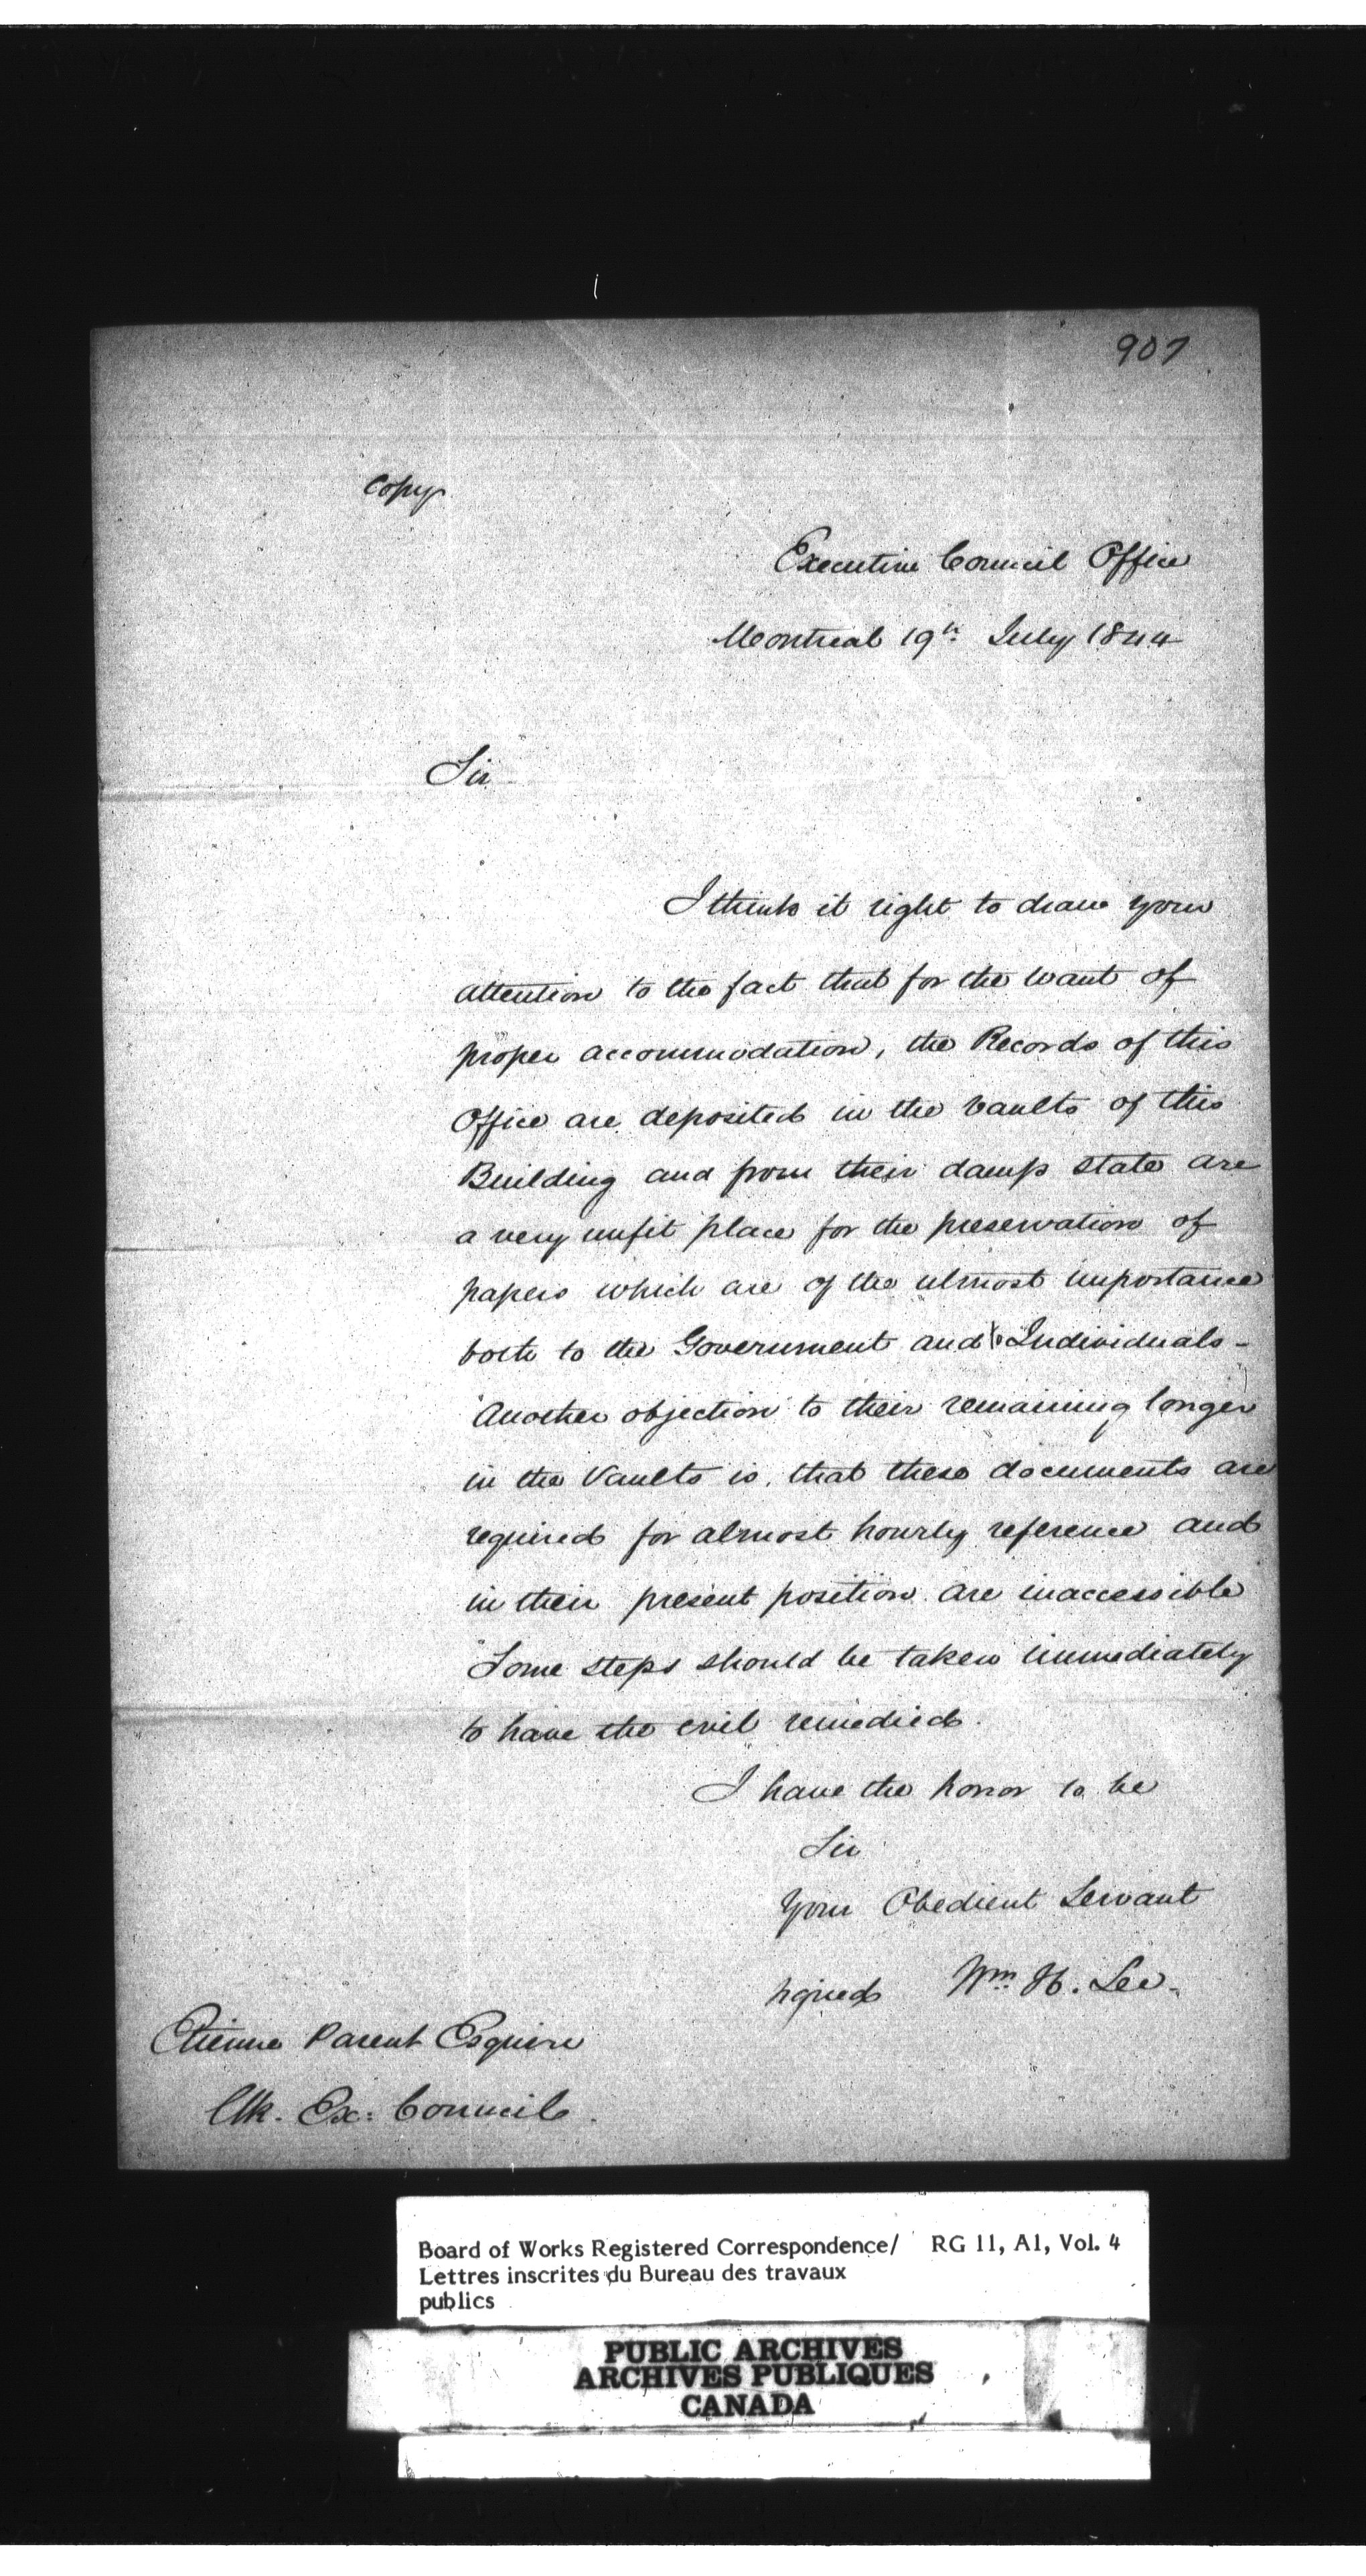 907
Copy
Executive Council Office
Montreal 19th July 1844
Sir
I think it right to draw your
attention to the fact that for the want of
proper accommodation, the Records of this
Office are deposited in the Vaults of this
Building and from their damp state are
a very unfit place for the preservation of
papers which are of the utmost importance
both to the Government and to Individuals -
Another objection to their remaining longer
in the Vaults is, that these documents are
required for almost hourly reference and
in their present position are inaccessible
Some steps should be taken immediately
to have the evil remedied.
I have the honor to be
Sir
Your Obedient Servant
signed Wm. H. Lee.
Etienne Parent Esquire
Clk. Ex: Council.
Board of Works Registered Correspondence/ RG 11, A1, Vol. 4
Lettres inscrites du Bureau des travaux
publics
PUBLIC ARCHIVES
ARCHIVES PUBLIQUES
CANADA